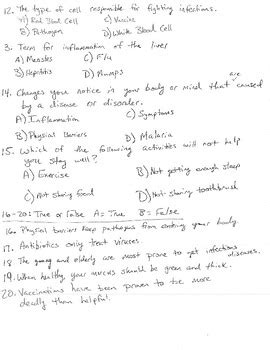 12. The type of cell responsible for fighting infections.
A) Red Blood Cell C) Vaccine
B) Pathogen D) White Blood Cell
3. Term for inflammation of the liver
A) Measles C) Flu
B) Hepatitis D) Mumps
are
14. Changes you notice in your body or mind that caused
by a disease or disorder.
A) Inflammation C) Symptoms
B) Physical Barriers D) Malaria
15. Which of the following activities will not help
you stay well?
A) Exercise B) Not getting enough sleep
C) Not sharing food D) Not sharing toothbrush
16-20: True or False A= True B= False
16. Physical barriers keep pathogens from entering your body
17. Antibiotics only treat viruses
18. The young and elderly are most prone to get infectious
diseases.
19. When healthy, your mucus should be green and thick.
20. Vaccinations have been proven to be more
deadly than helpful.